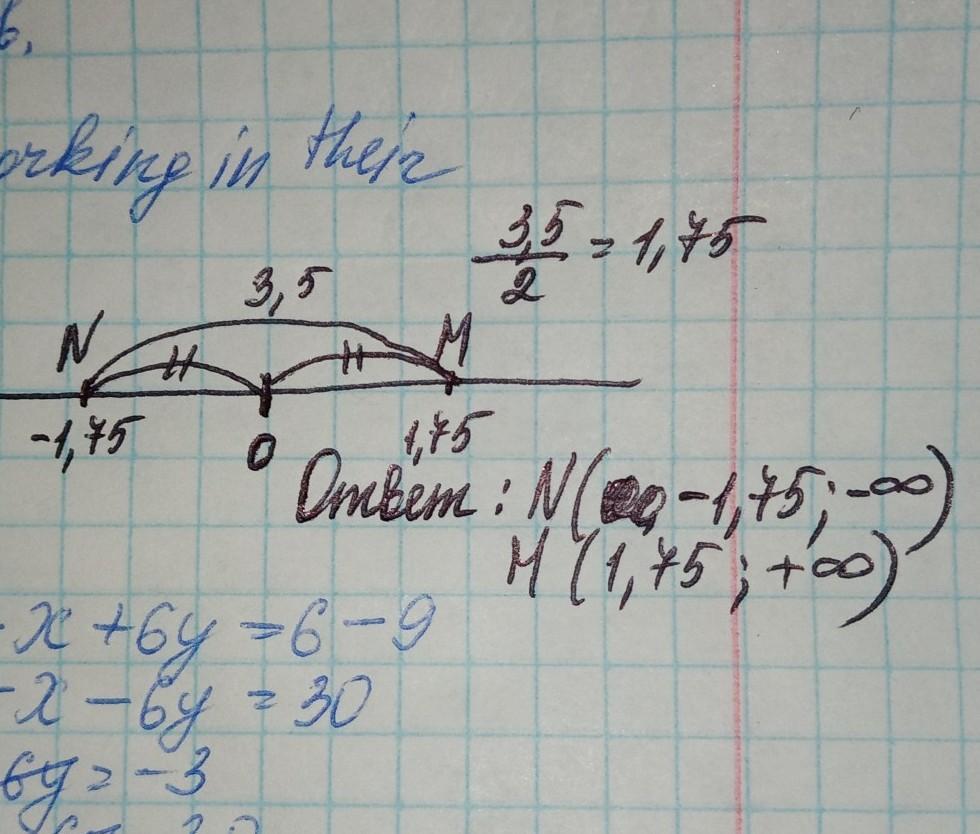 в,
orking in their
3,5/2 = 1,75
3,5
N M
-1,75 0 1,75
Ответ: N( -1,75; -∞)
M (1,75; +∞)
-x + 6y = 6 - 9
-x - 6y = 30
6y = -3